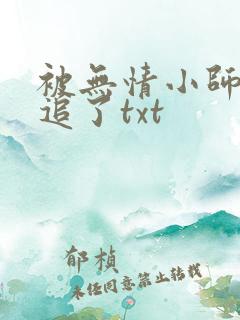 被無情小師
追了txt
郁楨
未任同意禁止转载